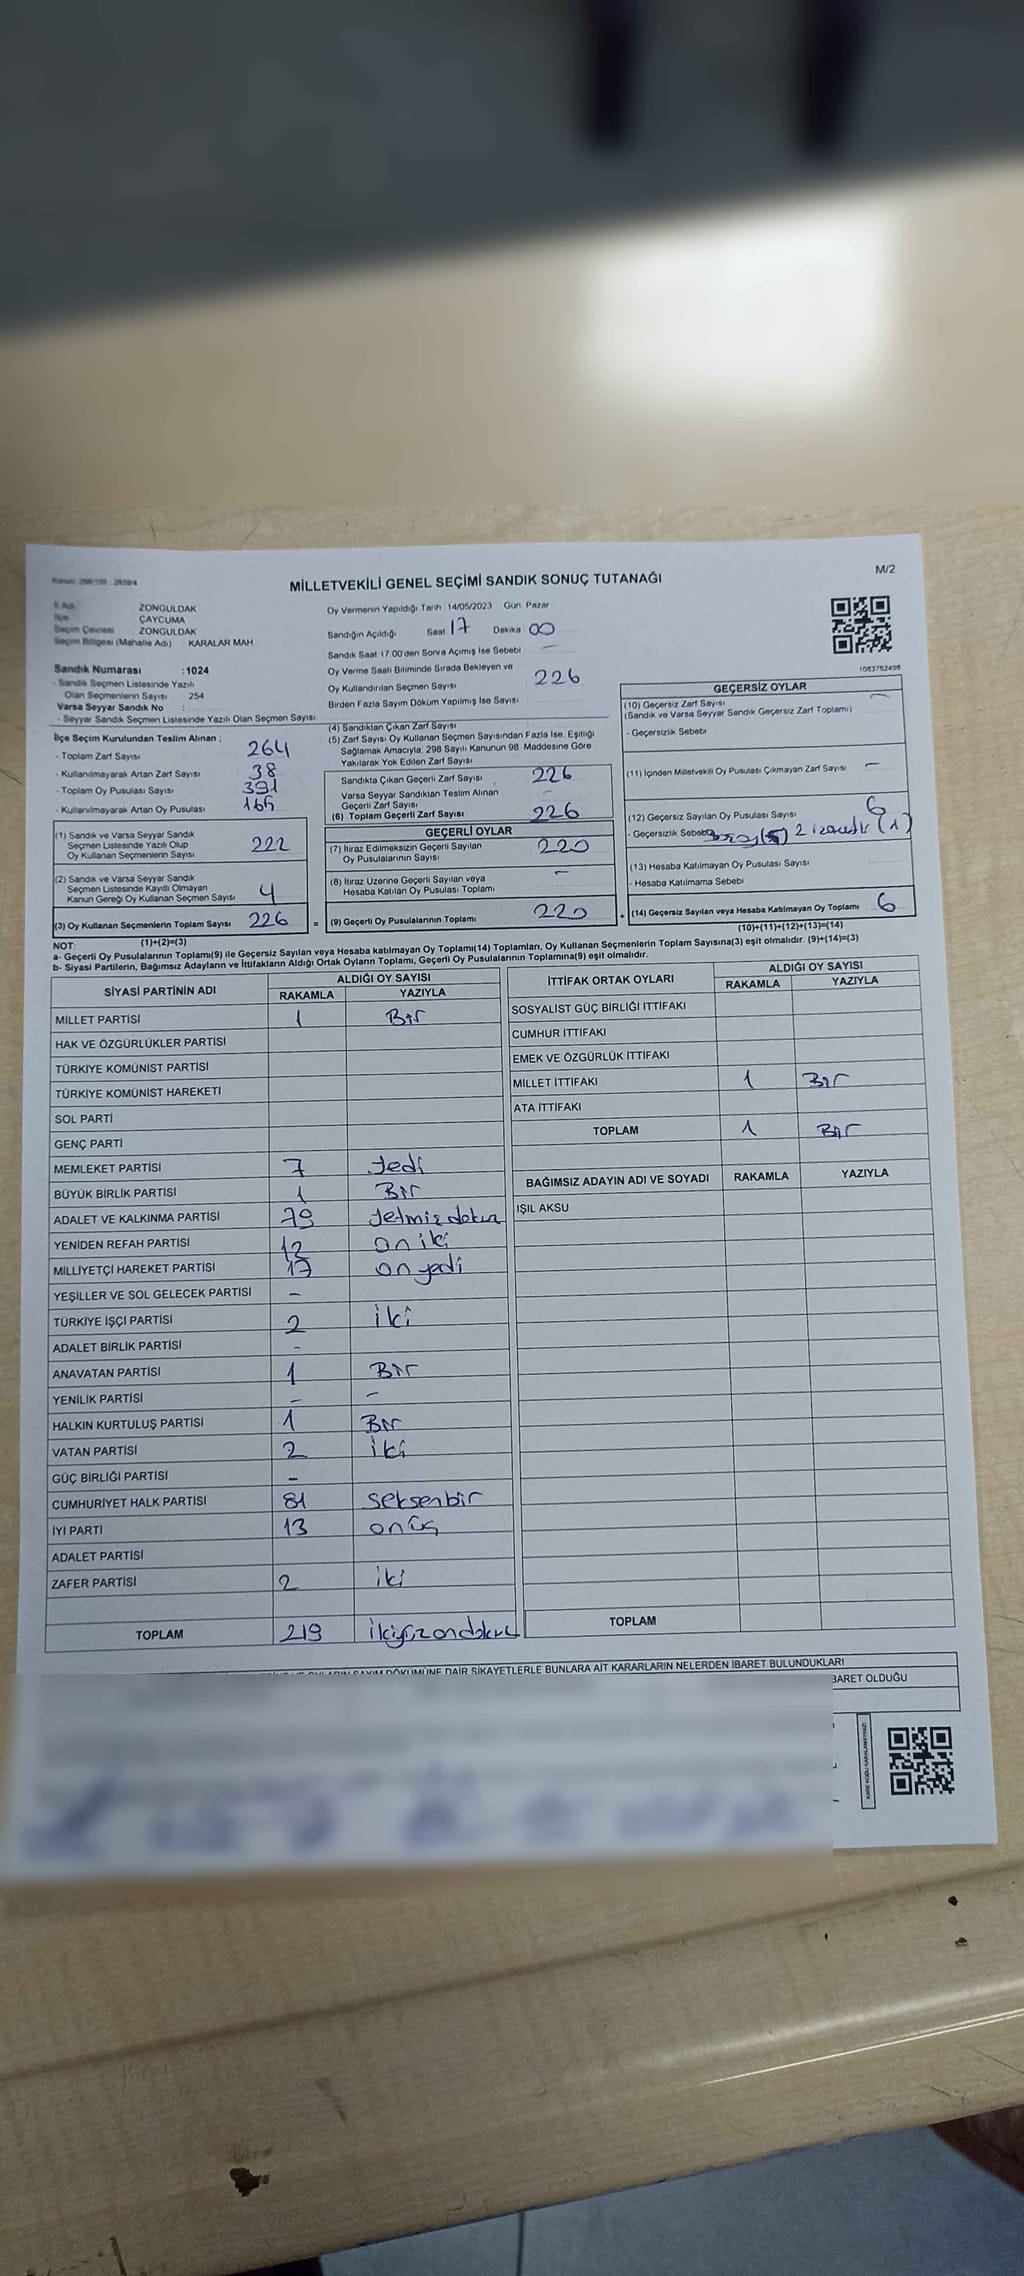 MİLLETVEKİLİ GENEL SEÇİMİ SANDIK SONUÇ TUTANAĞI
M/2
İl Adı ZONGULDAK
İlçe ÇAYCUMA
Seçim Çevresi ZONGULDAK
Seçim Bölgesi (Mahalle Adı) KARALAR MAH.
Sandık Numarası :1024
- Sandık Seçmen Listesinde Yazılı
Olan Seçmenlerin Sayısı 254
Varsa Seyyar Sandık No :
- Seyyar Sandık Seçmen Listesinde Yazılı Olan Seçmen Sayısı:
Oy Vermenin Yapıldığı Tarih 14/05/2023 Gün Pazar
Sandığın Açıldığı Saat 17 Dakika 00
Sandık Saat 17.00'den Sonra Açımış İse Sebebi —
Oy Verme Saati Bitiminde Sırada Bekleyen ve
Oy Kullandırılan Seçmen Sayısı 226
Birden Fazla Sayım Döküm Yapılmış İse Sayısı
1083762498
İlçe Seçim Kurulundan Teslim Alınan :
- Toplam Zarf Sayısı 264
- Kullanılmayarak Artan Zarf Sayısı 38
- Toplam Oy Pusulası Sayısı 391
- Kullanılmayarak Artan Oy Pusulası 165
(1) Sandık ve Varsa Seyyar Sandık
Seçmen Listesinde Yazılı Olup
Oy Kullanan Seçmenlerin Sayısı 222
(2) Sandık ve Varsa Seyyar Sandık
Seçmen Listesinde Kayıtlı Olmayan
Kanun Gereği Oy Kullanan Seçmen Sayısı 4
(3) Oy Kullanan Seçmenlerin Toplam Sayısı 226
(1)+(2)=(3)
(4) Sandıktan Çıkan Zarf Sayısı
(5) Zarf Sayısı Oy Kullanan Seçmen Sayısından Fazla İse, Eşitliği
Sağlamak Amacıyla, 298 Sayılı Kanunun 98. Maddesine Göre
Yakılarak Yok Edilen Zarf Sayısı
Sandıkta Çıkan Geçerli Zarf Sayısı 226
Varsa Seyyar Sandıktan Teslim Alınan
Geçerli Zarf Sayısı -
(6) Toplam Geçerli Zarf Sayısı 226
GEÇERLİ OYLAR
(7) İtiraz Edilmeksizin Geçerli Sayılan
Oy Pusulalarının Sayısı 220
(8) İtiraz Üzerine Geçerli Sayılan veya
Hesaba Katılan Oy Pusulası Toplamı —
= (9) Geçerli Oy Pusulalarının Toplamı 220
GEÇERSİZ OYLAR
(10) Geçersiz Zarf Sayısı —
(Sandık ve Varsa Seyyar Sandık Geçersiz Zarf Toplamı)
- Geçersizlik Sebebi
(11) İçinden Milletvekili Oy Pusulası Çıkmayan Zarf Sayısı —
(12) Geçersiz Sayılan Oy Pusulası Sayısı 6
- Geçersizlik Sebebi (5) 2 (1)
(13) Hesaba Katılmayan Oy Pusulası Sayısı
- Hesaba Katılmama Sebebi
+ (14) Geçersiz Sayılan veya Hesaba Katılmayan Oy Toplamı 6
(10)+(11)+(12)+(13)=(14)
NOT:
a- Geçerli Oy Pusulalarının Toplamı(9) ile Geçersiz Sayılan veya Hesaba katılmayan Oy Toplamı(14) Toplamları, Oy Kullanan Seçmenlerin Toplam Sayısına(3) eşit olmalıdır. (9)+(14)=(3)
b- Siyasi Partilerin, Bağımsız Adayların ve İttifakların Aldığı Ortak Oyların Toplamı, Geçerli Oy Pusulalarının Toplamına(9) eşit olmalıdır.
SİYASİ PARTİNİN ADI ALDIĞI OY SAYISI
RAKAMLA YAZIYLA
MİLLET PARTİSİ 1 Bir
HAK VE ÖZGÜRLÜKLER PARTİSİ
TÜRKİYE KOMÜNİST PARTİSİ
TÜRKİYE KOMÜNİST HAREKETİ
SOL PARTİ
GENÇ PARTİ
MEMLEKET PARTİSİ 7 yedi
BÜYÜK BİRLİK PARTİSİ 1 Bir
ADALET VE KALKINMA PARTİSİ 79 yetmiş dokuz
YENİDEN REFAH PARTİSİ 12 on iki
MİLLİYETÇİ HAREKET PARTİSİ 17 on yedi
YEŞİLLER VE SOL GELECEK PARTİSİ -
TÜRKİYE İŞÇİ PARTİSİ 2 iki
ADALET BİRLİK PARTİSİ -
ANAVATAN PARTİSİ 1 Bir
YENİLİK PARTİSİ - -
HALKIN KURTULUŞ PARTİSİ 1 Bir
VATAN PARTİSİ 2 iki
GÜÇ BİRLİĞİ PARTİSİ -
CUMHURİYET HALK PARTİSİ 81 seksenbir
İYİ PARTİ 13 onüç
ADALET PARTİSİ
ZAFER PARTİSİ 2 iki
TOPLAM 219 ikiyüzondokuz
İTTİFAK ORTAK OYLARI ALDIĞI OY SAYISI
RAKAMLA YAZIYLA
SOSYALİST GÜÇ BİRLİĞİ İTTİFAKI
CUMHUR İTTİFAKI
EMEK VE ÖZGÜRLÜK İTTİFAKI
MİLLET İTTİFAKI 1 Bir
ATA İTTİFAKI
TOPLAM 1 Bir
BAĞIMSIZ ADAYIN ADI VE SOYADI RAKAMLA YAZIYLA
IŞIL AKSU
TOPLAM
SAYIM DÖKÜMÜNE DAİR ŞİKAYETLERLE BUNLARA AİT KARARLARIN NELERDEN İBARET BULUNDUKLARI
BARET OLDUĞU
KARE KODU KARALAMAYINIZ!